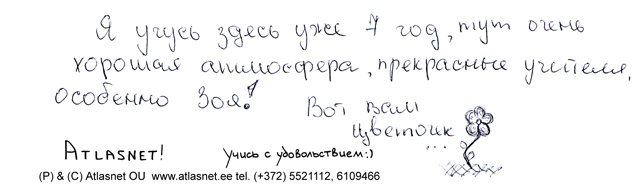 Я учусь здесь уже 7 год, тут очень
хорошая атмосфера, прекрасные учителя,
особенно Зоя!
Вот вам
цветочик
...
ATLASNET! Учись с удовольствием:)
(P) & (C) Atlasnet OU www.atlasnet.ee tel. (+372) 5521112, 6109466